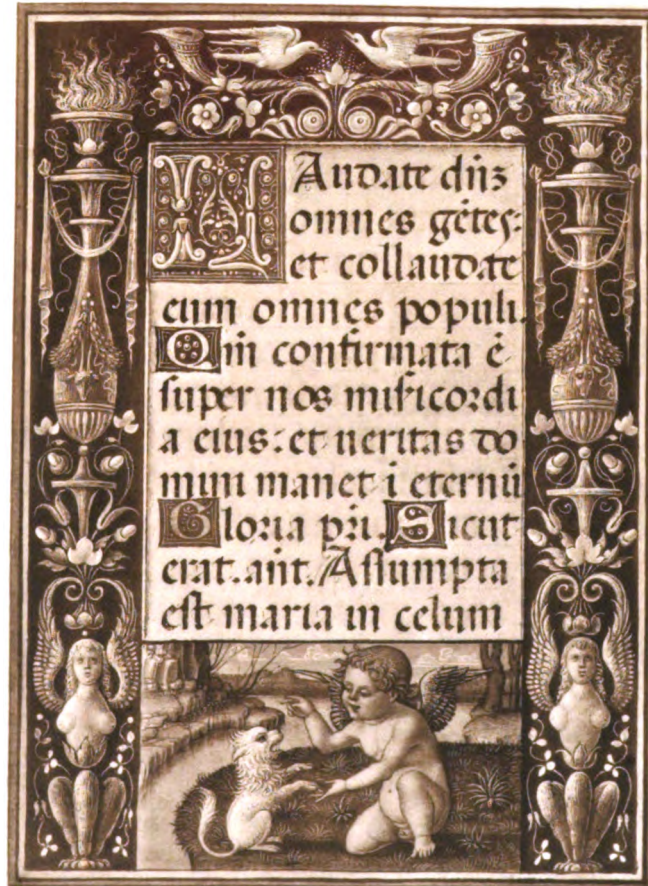 LAudate dn̄ꝫ
omnes gētes:
et collaudate
eum omnes populi.
Qm̄ confirmata ē
super nos misericordi
a eius: et ueritas do
mini manet ī eternū
Gloria pr̄i. Sicut
erat. ant̄. Assumpta
est maria in celum